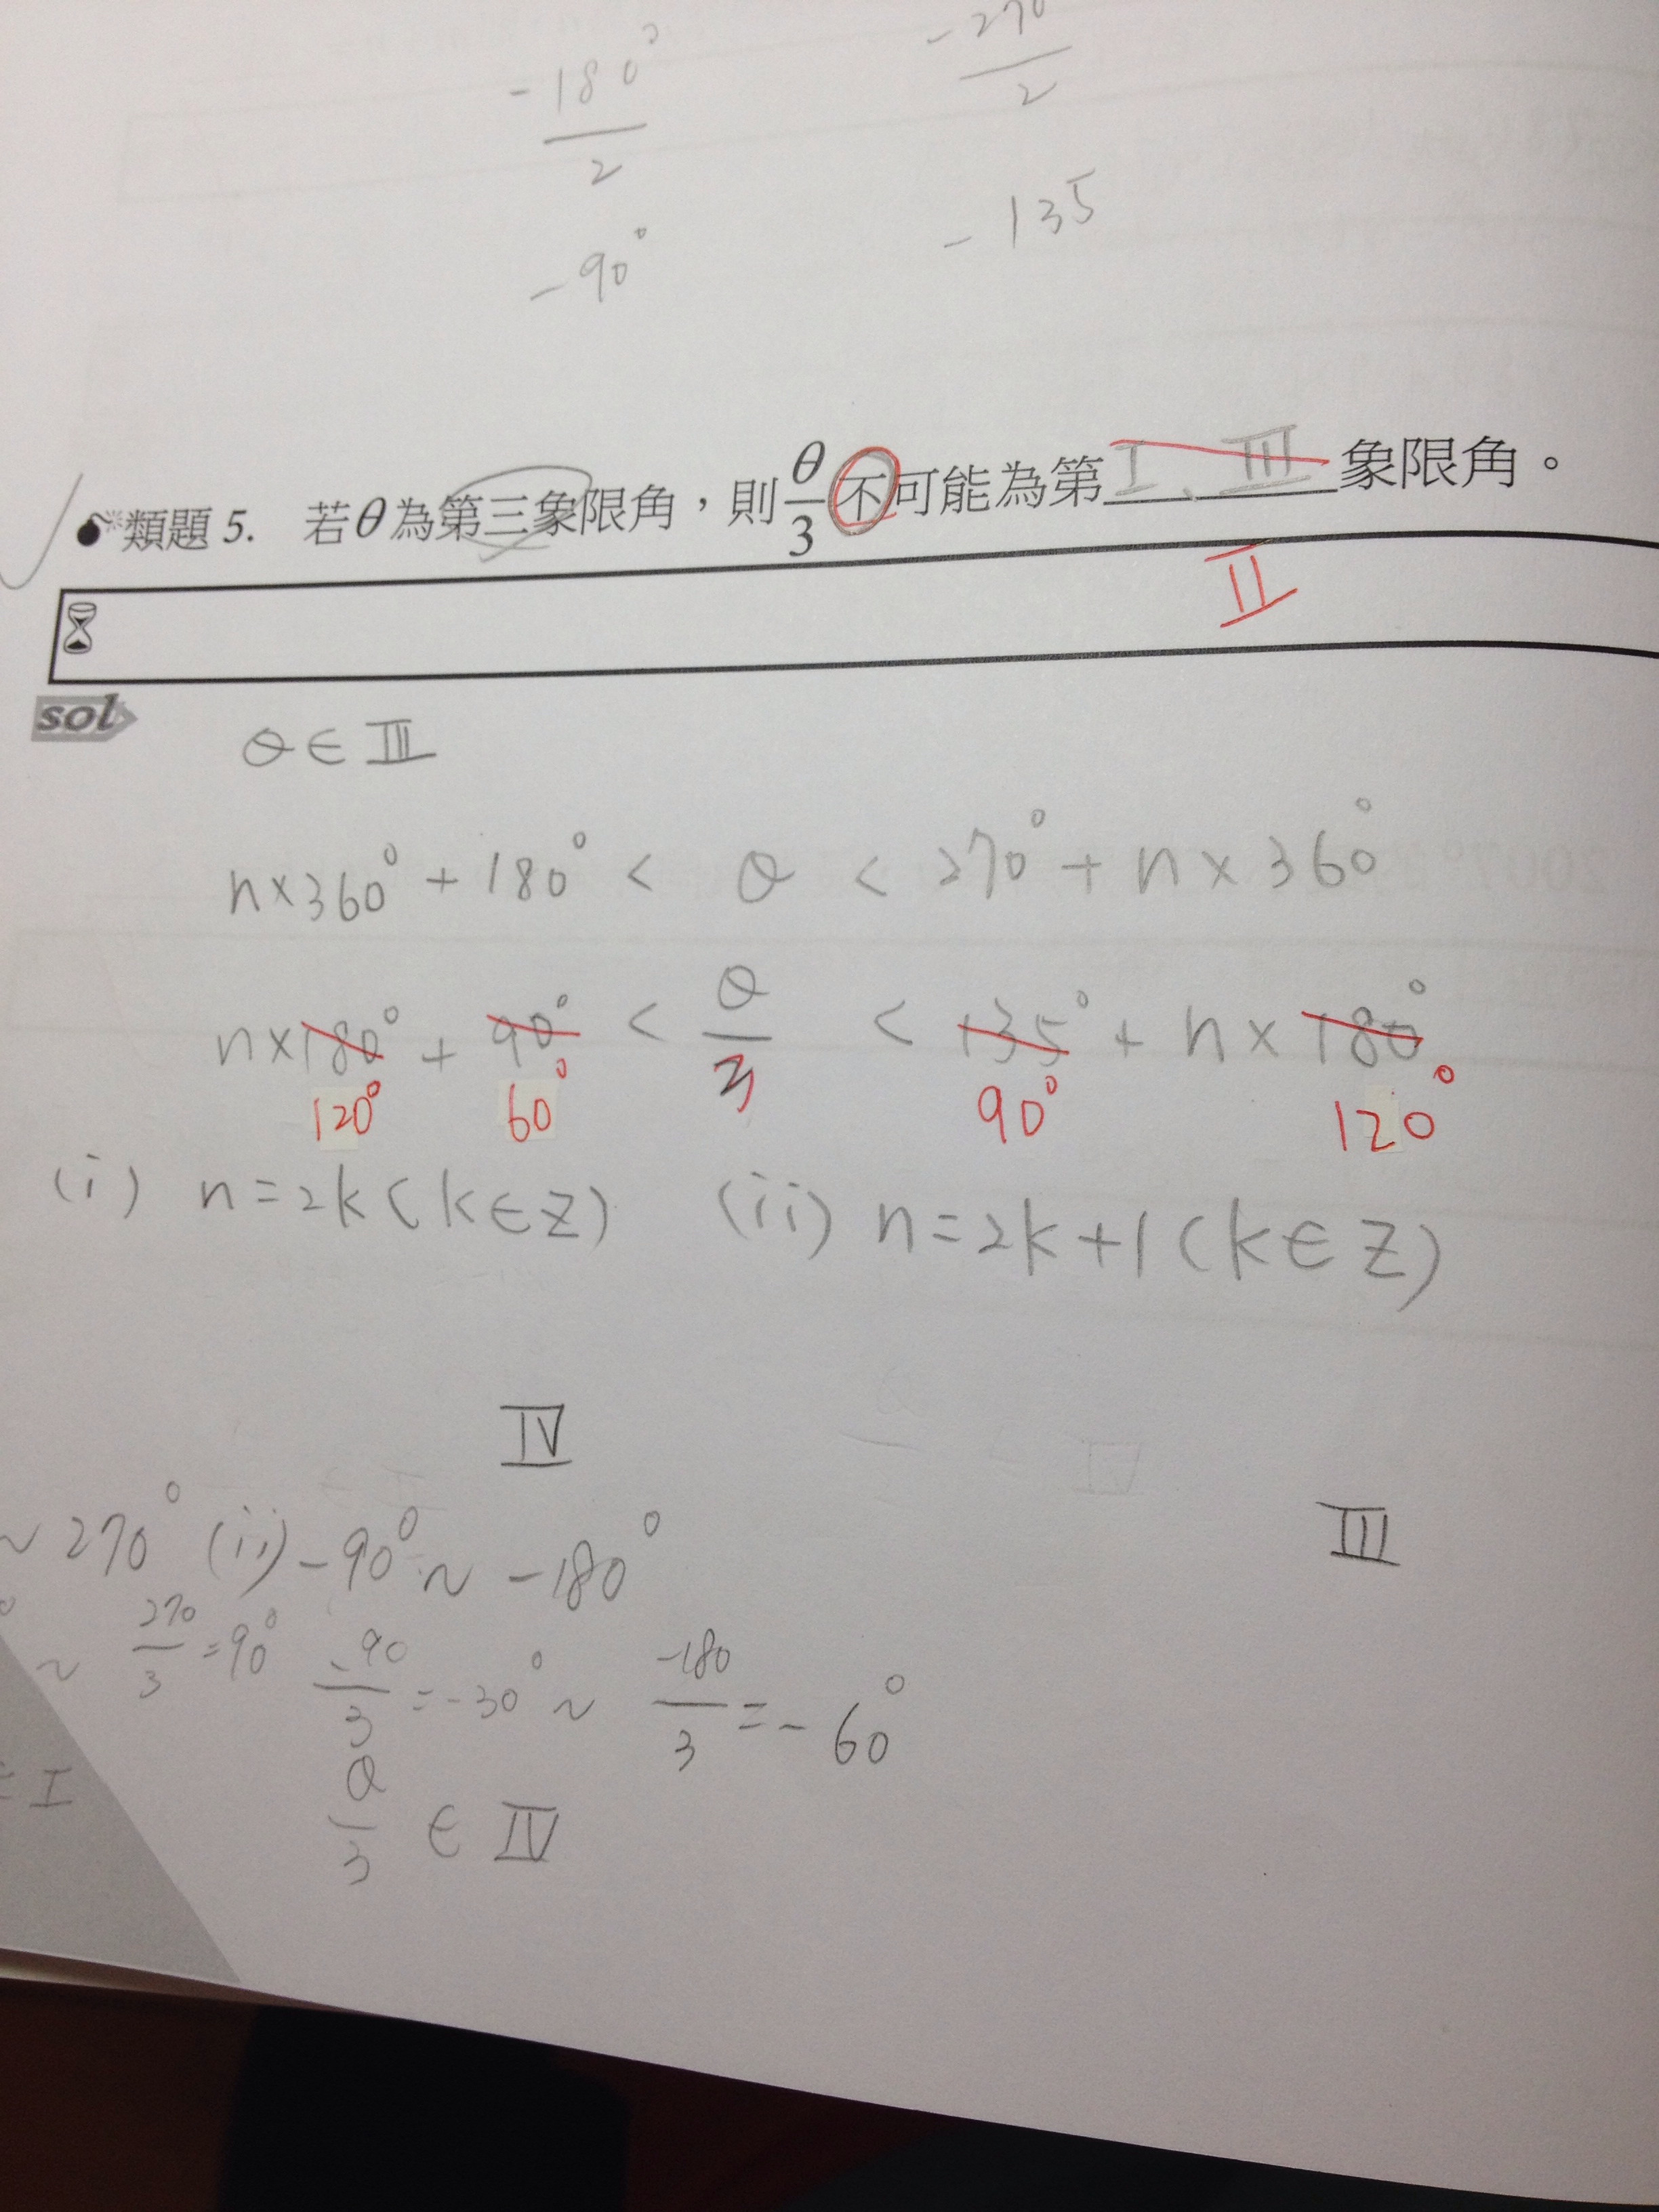 -180° -270
2 2
-90° -135
類題 5. 若θ為第三象限角，則θ/3不可能為第I、III象限角。
II
sol
θ∈III
n×360°+180° < θ < 270°+n×360°
n×180°+90° < θ/3 < 135°+n×180°
120° 60° 90° 120°
(i) n=2k(k∈Z) (ii) n=2k+1(k∈Z)
IV
~270° (ii) -90°~-180°
III
~ 270/3=90° -90/3=-30°~ -180/3=-60°
=I
θ/3 ∈ IV